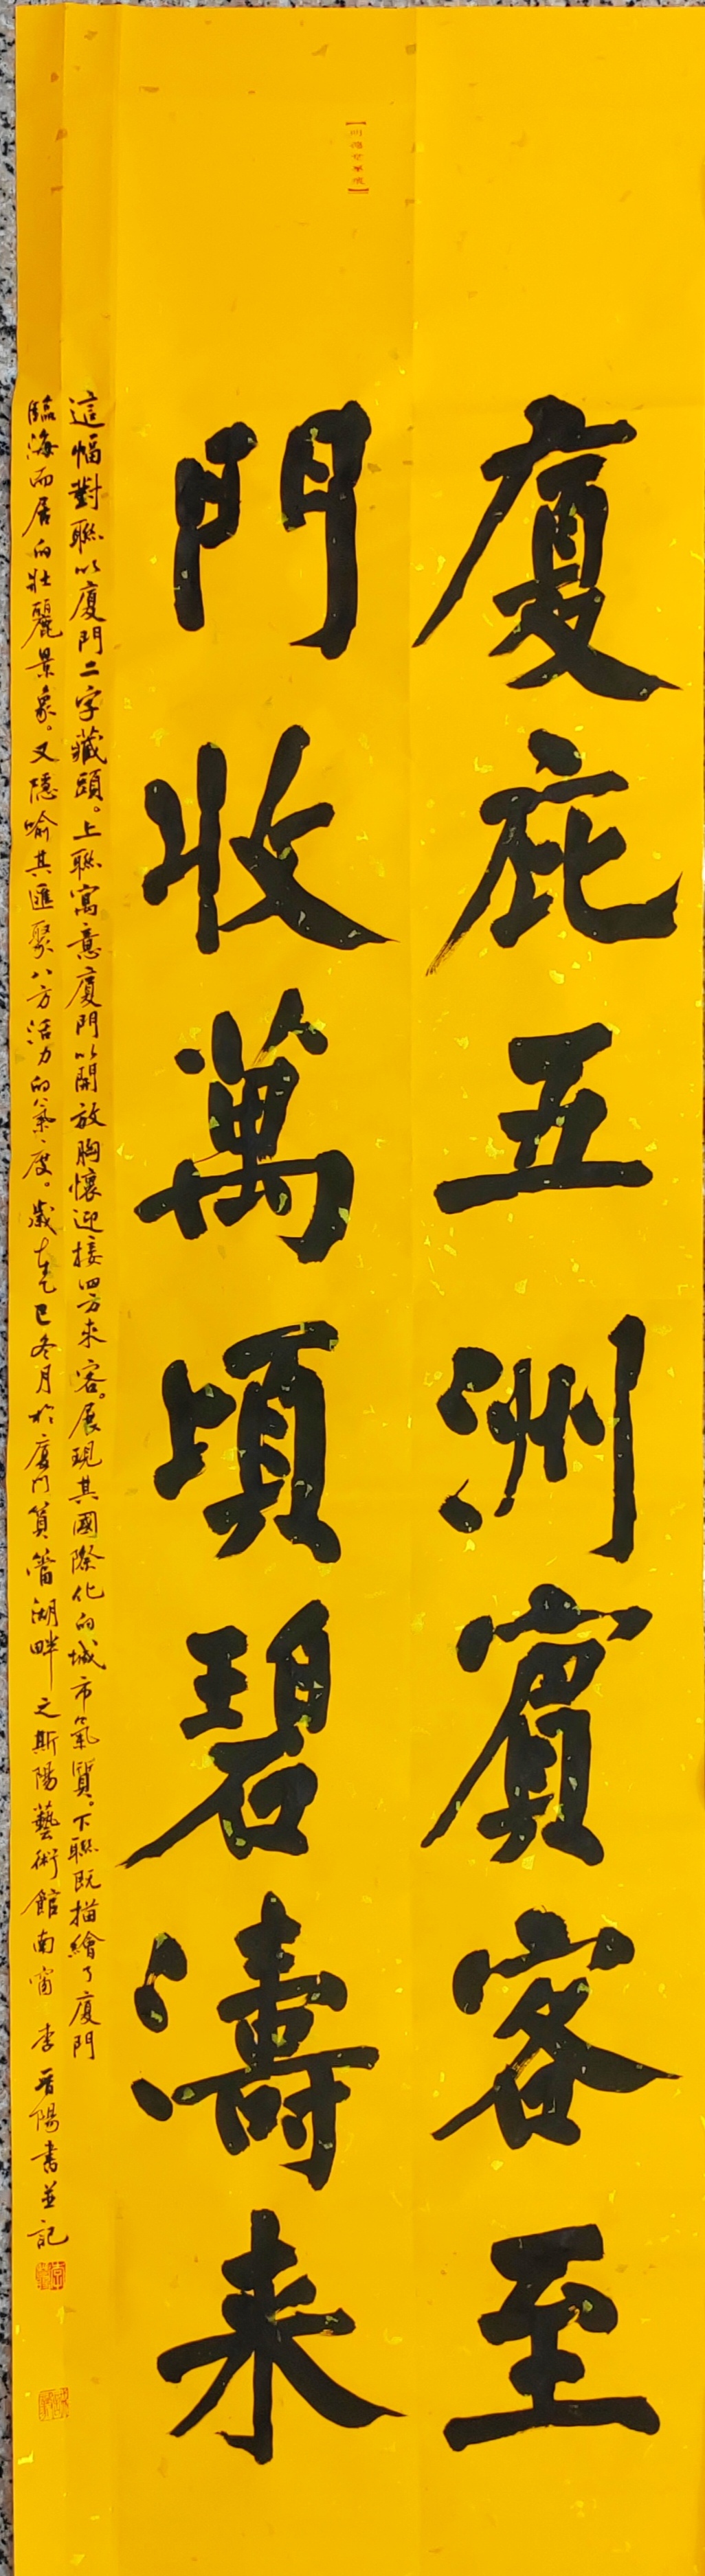 廈庇五洲賓客至
門收萬頃碧濤来
這幅對聯以廈門二字藏頭。上聯寓意廈門以開放胸懷迎接四方來客。展現其國際化的城市氣質。下聯既描繪了廈門
臨海而居的壯麗景象。又隱喻其匯聚八方活力的氣度。歲在乙巳冬月於廈門篔簹湖畔之斯陽藝術館南窗 李晉陽書並記